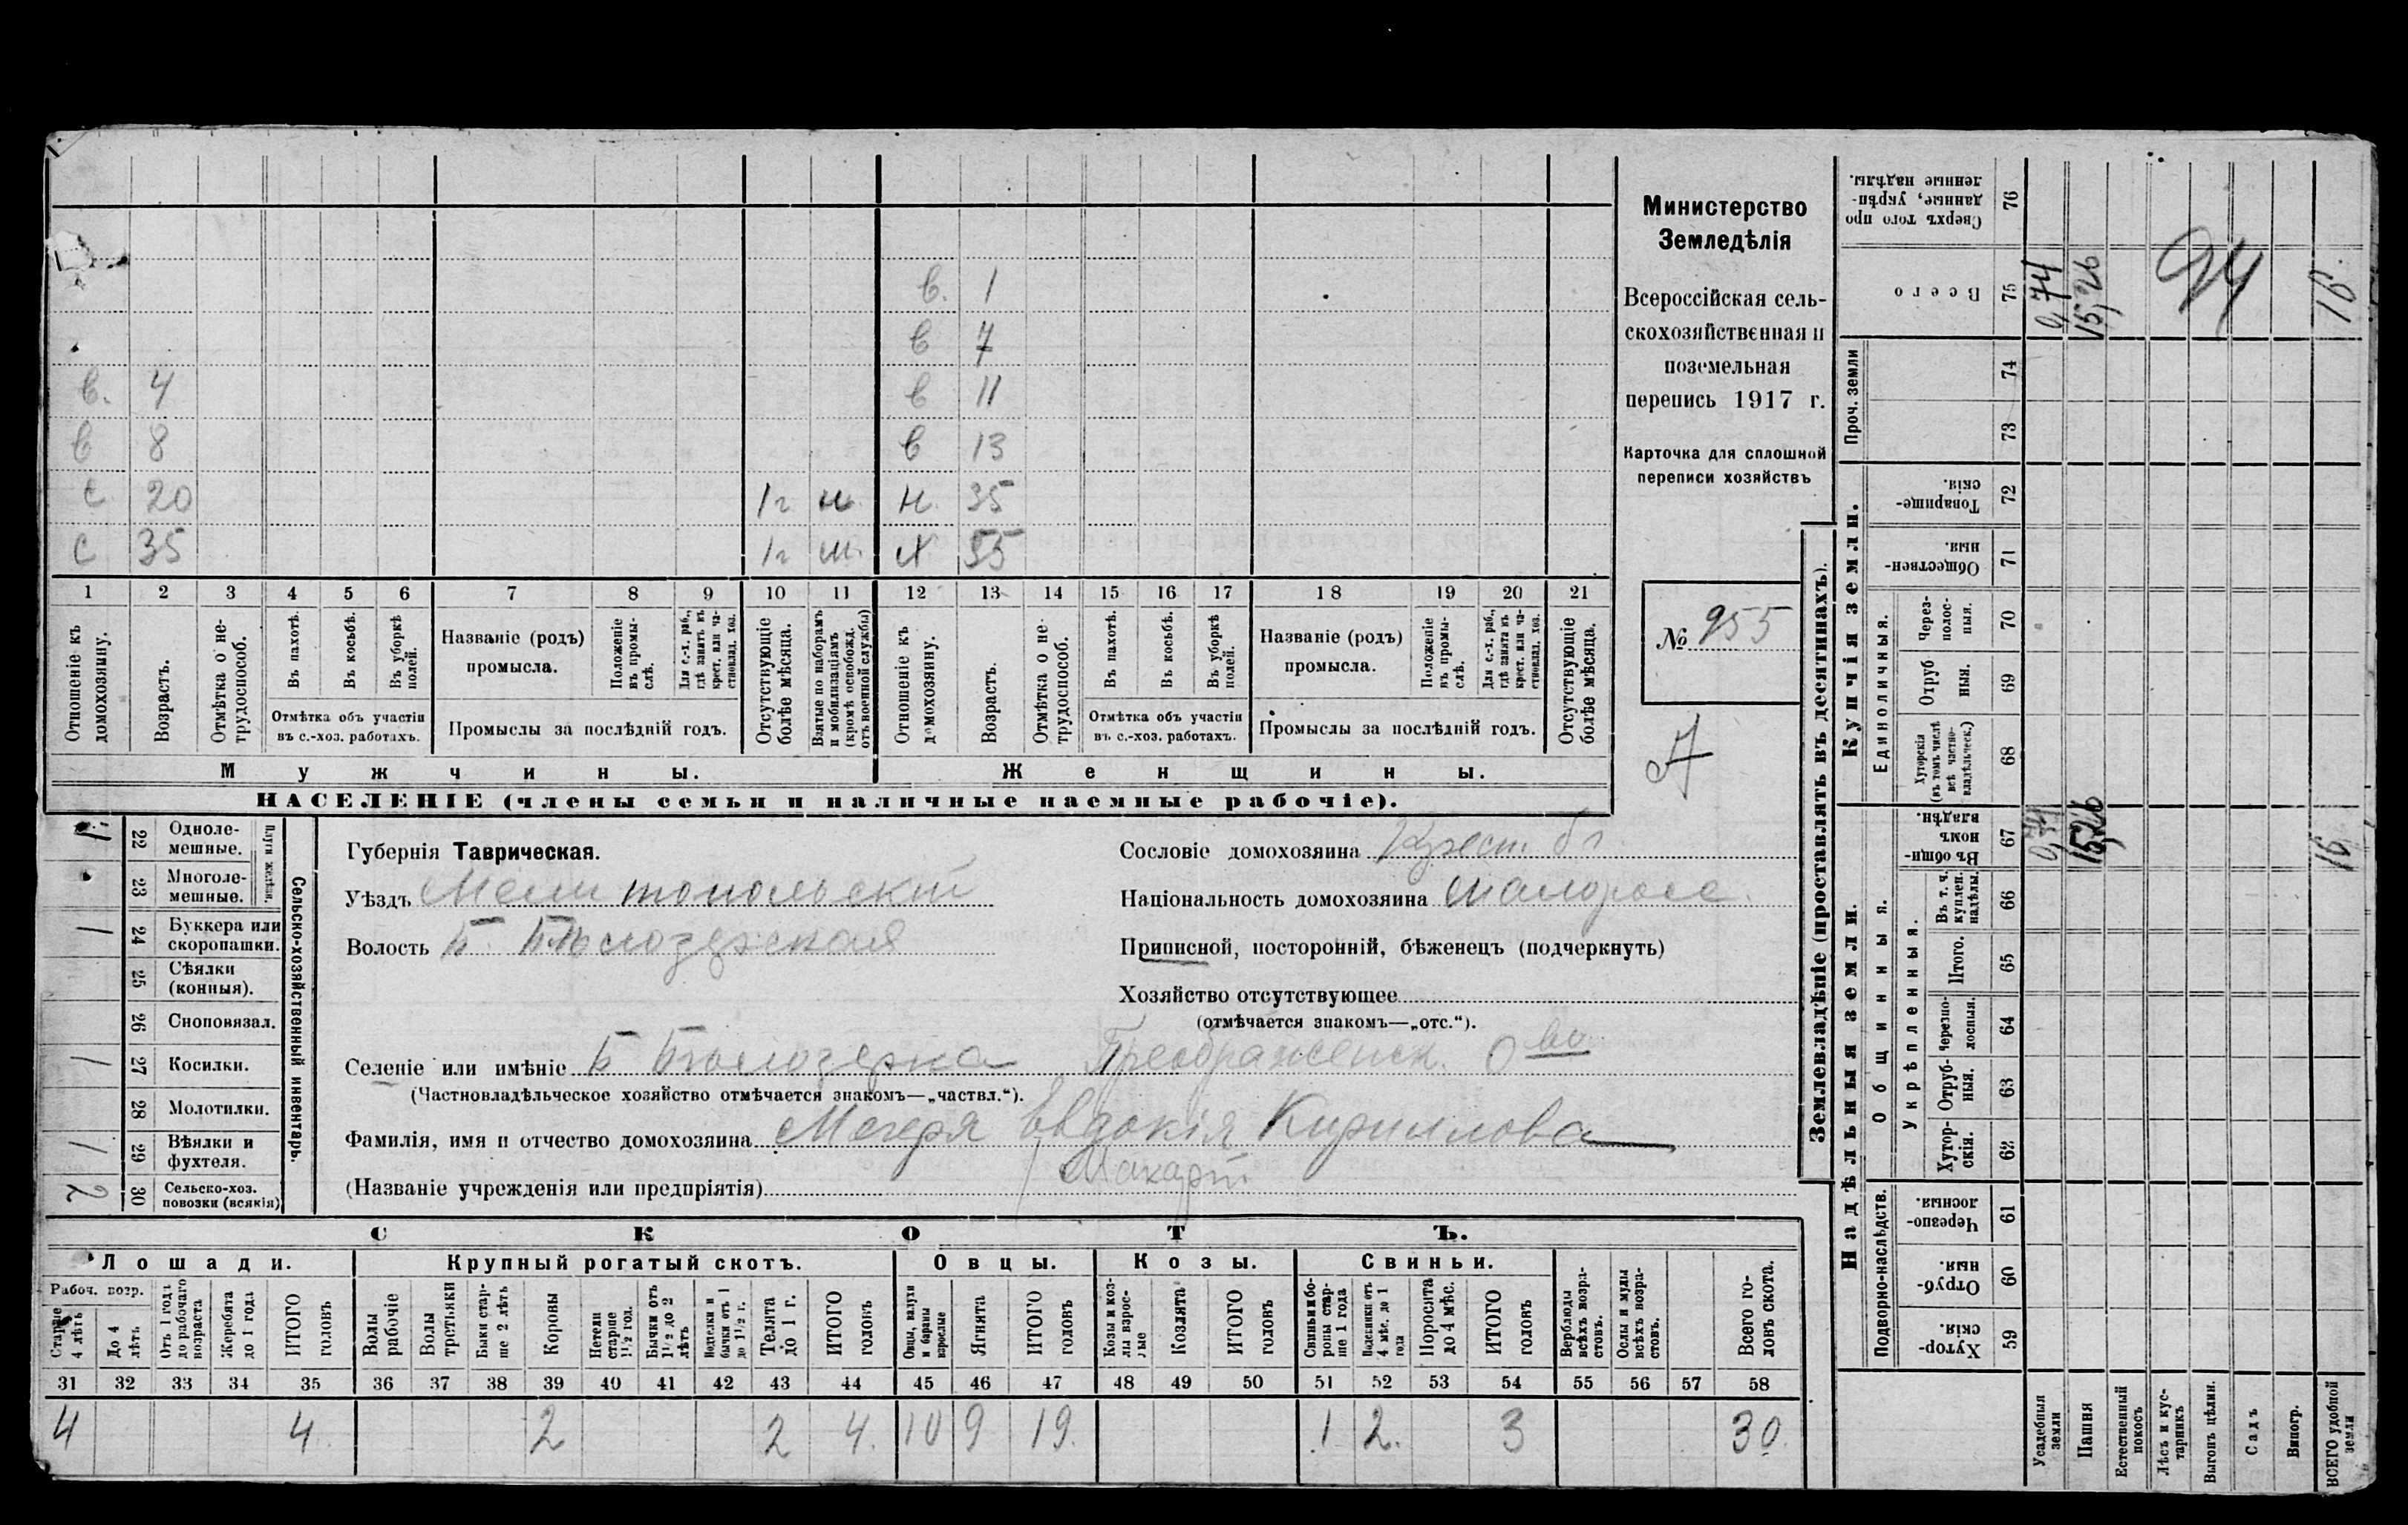 в. 1
в 7
в. 4 в 11
в 8 в 13
с 20 1г м. н. 35
с 35 1г м. х 55
1 2 3 4 5 6 7 8 9 10 11 12 13 14 15 16 17 18 19 20 21
Отношеніе къ домохозяину.
Возрастъ.
Отмѣтка о не-трудоспособ.
Въ пахотѣ.
Въ косьбѣ.
Въ уборкѣ полей.
Отмѣтка объ участіи въ с.-хоз. работахъ.
Названіе (родъ) промысла.
Положеніе въ промыслѣ.
Для с.-х. раб., гдѣ занятъ въ крест. или ча-стновлад. хоз.
Промыслы за послѣдній годъ.
Отсутствующіе болѣе мѣсяца.
Взятые по наборамъ и мобилизаціямъ (кромѣ освобожд. отъ военной службы)
Отношеніе къ домохозяину.
Возрастъ.
Отмѣтка о не-трудоспособ.
Въ пахотѣ.
Въ косьбѣ.
Въ уборкѣ полей.
Отмѣтка объ участіи въ с.-хоз. работахъ.
Названіе (родъ) промысла.
Положеніе въ промы-слѣ.
Для с.-х. раб., гдѣ занята въ крест. или ча-стновлад. хоз.
Промыслы за послѣдній годъ.
Отсутствующіе болѣе мѣсяца.
Мужчины. Женщины.
НАСЕЛЕНІЕ (члены семьи и наличные наемные рабочіе).
Министерство
Земледѣлія
Всероссійская сель-
скохозяйственная и
поземельная
перепись 1917 г.
Карточка для сплошной
переписи хозяйствъ
№ 955
А
Сельско-хозяйственный инвентарь.
Плуги желѣзн.
1 22 Одноле-мешные.
23 Многоле-мешные.
1 24 Буккера или скоропашки.
25 Сѣялки (конныя).
26 Сноповязал.
1 27 Косилки.
28 Молотилки.
1 29 Вѣялки и фухтеля.
2 30 Сельско-хоз. повозки (всякія)
Губернія Таврическая.
Уѣздъ Мелитопольскій
Волость Б. Бѣлозерская
Селеніе или имѣніе Б Бѣлозерка Преображенск. О во
(Частновладѣльческое хозяйство отмѣчается знакомъ—„частвл.“).
Фамилія, имя и отчество домохозяина Мегеря Евдокія Кириллова
Макарій
(Названіе учрежденія или предпріятія)
Сословіе домохозяина Крест.
Національность домохозяина малоросс.
Приписной, посторонній, бѣженецъ (подчеркнуть)
Хозяйство отсутствующее
(отмѣчается знакомъ—„отс.“).
СКОТЪ.
Лошади. Крупный рогатый скотъ. Овцы. Козы. Свиньи.
Рабоч. возр.
Старше 4 лѣтъ
До 4 лѣтъ
Отъ 1 года до рабочаго возраста
Жеребята до 1 года
ИТОГО головъ
Волы рабочіе
Волы третьяки
Быки стар-ше 2 лѣтъ
Коровы
Нетели старше 1½ год.
Бычки отъ 1½ до 2 лѣтъ
Нетелки и бычки отъ 1 до 1½ г.
Телята до 1 г.
ИТОГО головъ
Овцы, валухи и бараны взрослые
Ягнята
ИТОГО головъ
Козы и коз-лы взрос-лые
Козлята
ИТОГО головъ
Свиньи и бо-ровы стар-ше 1 года
Подсвинки отъ 4 мѣс. до 1 года
Поросята до 4 мѣс.
ИТОГО головъ
Верблюды всѣхъ возра-стовъ.
Ослы и мулы всѣхъ возра-стовъ.
Всего го-ловъ скота.
31 32 33 34 35 36 37 38 39 40 41 42 43 44 45 46 47 48 49 50 51 52 53 54 55 56 57 58
4 4 2 2 4. 10 9 19. 1 2. 3 30
Землевладѣніе (проставлять въ десятинахъ).
Надѣльныя земли. Купчія земли. Проч. земли
Подворно-наслѣдств.
Общинныя.
Укрѣпленныя.
Единоличныя.
Сверхъ того про данные, укрѣп-ленные надѣлы. 76
Всего 75 0,74 15,26 16
94
74
73
Товарище-скія. 72
Обществен-ныя. 71
Через-полос-ныя. 70
Отруб-ныя. 69
Хуторскія (въ томъ числѣ всѣ частно-владѣльческ.) 68
Въ общин-номъ владѣн. 67 0,74 15,26 16
Въ т. ч. куплен. надѣлы. 66
Итого. 65
Черезпо-лосныя. 64
Отруб-ныя. 63
Хутор-скія. 62
Черезпо-лосныя. 61
Отруб-ныя. 60
Хутор-скія. 59
Усадебныя земли
Пашня
Естественный покосъ
Лѣсъ и кус-тарникъ
Выгонъ цѣлин.
Садъ
Виногр.
ВСЕГО удобной земли